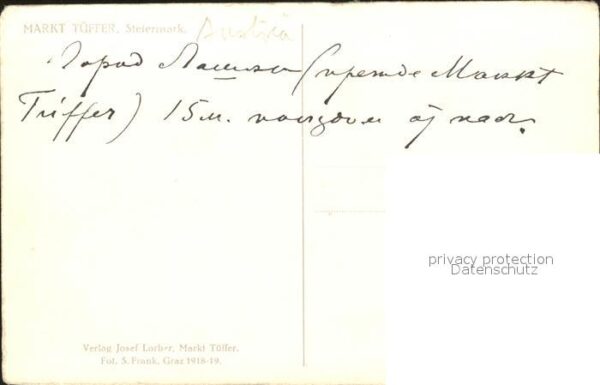 MARKT TÜFFER, Steiermark.
Austria
Город Лашко (прежде Маркт
Tüffer) 15 м. поездом от нас.
privacy protection
Datenschutz
Verlag Josef Larher, Markt Tüffer.
Fot. S. Frank, Graz 1918-19.